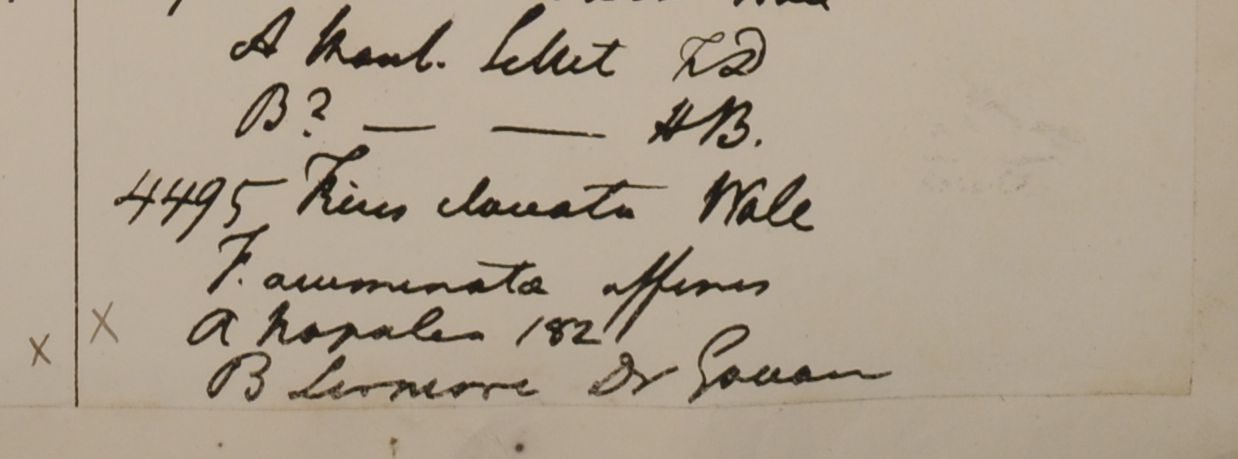 A Mont. Sillet FD
B? — — HB.
4495 Ficus clavata Wall
F. acuminatae affinis
A Napalea 1821
B Sirmore Dr Govan